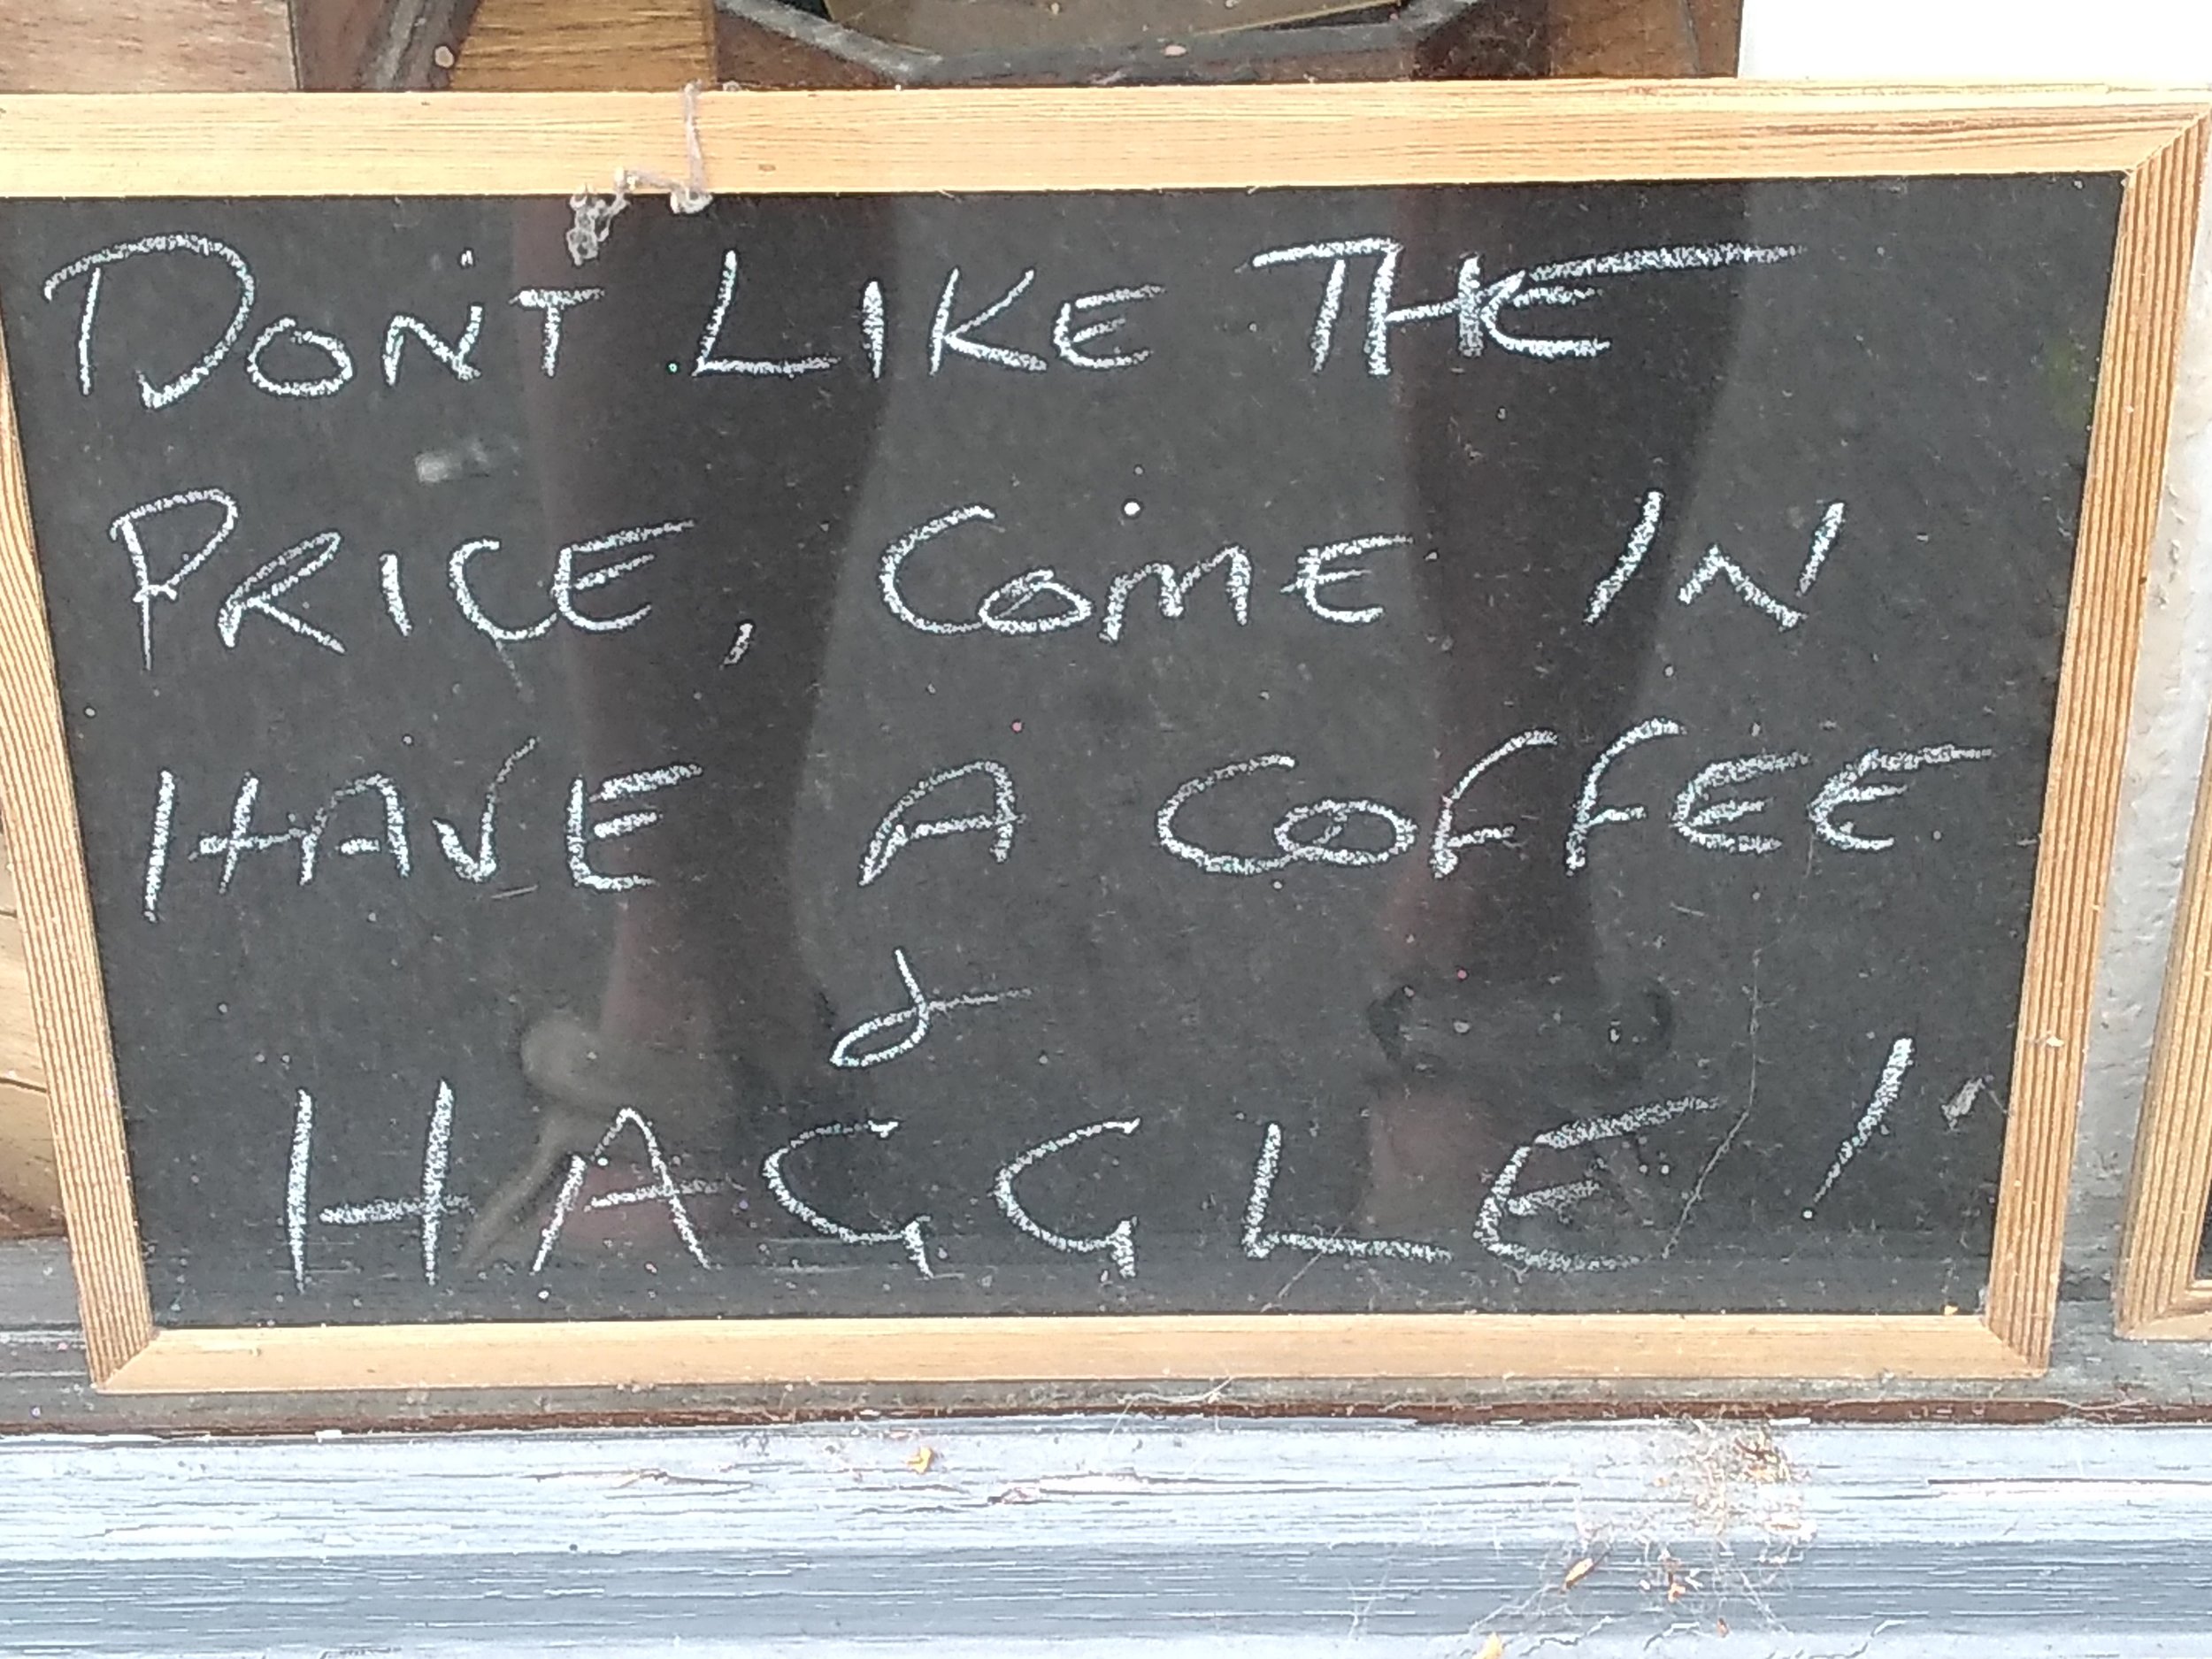 DON'T LIKE THE
PRICE, COME IN
HAVE A COFFEE
&
HAGGLE!